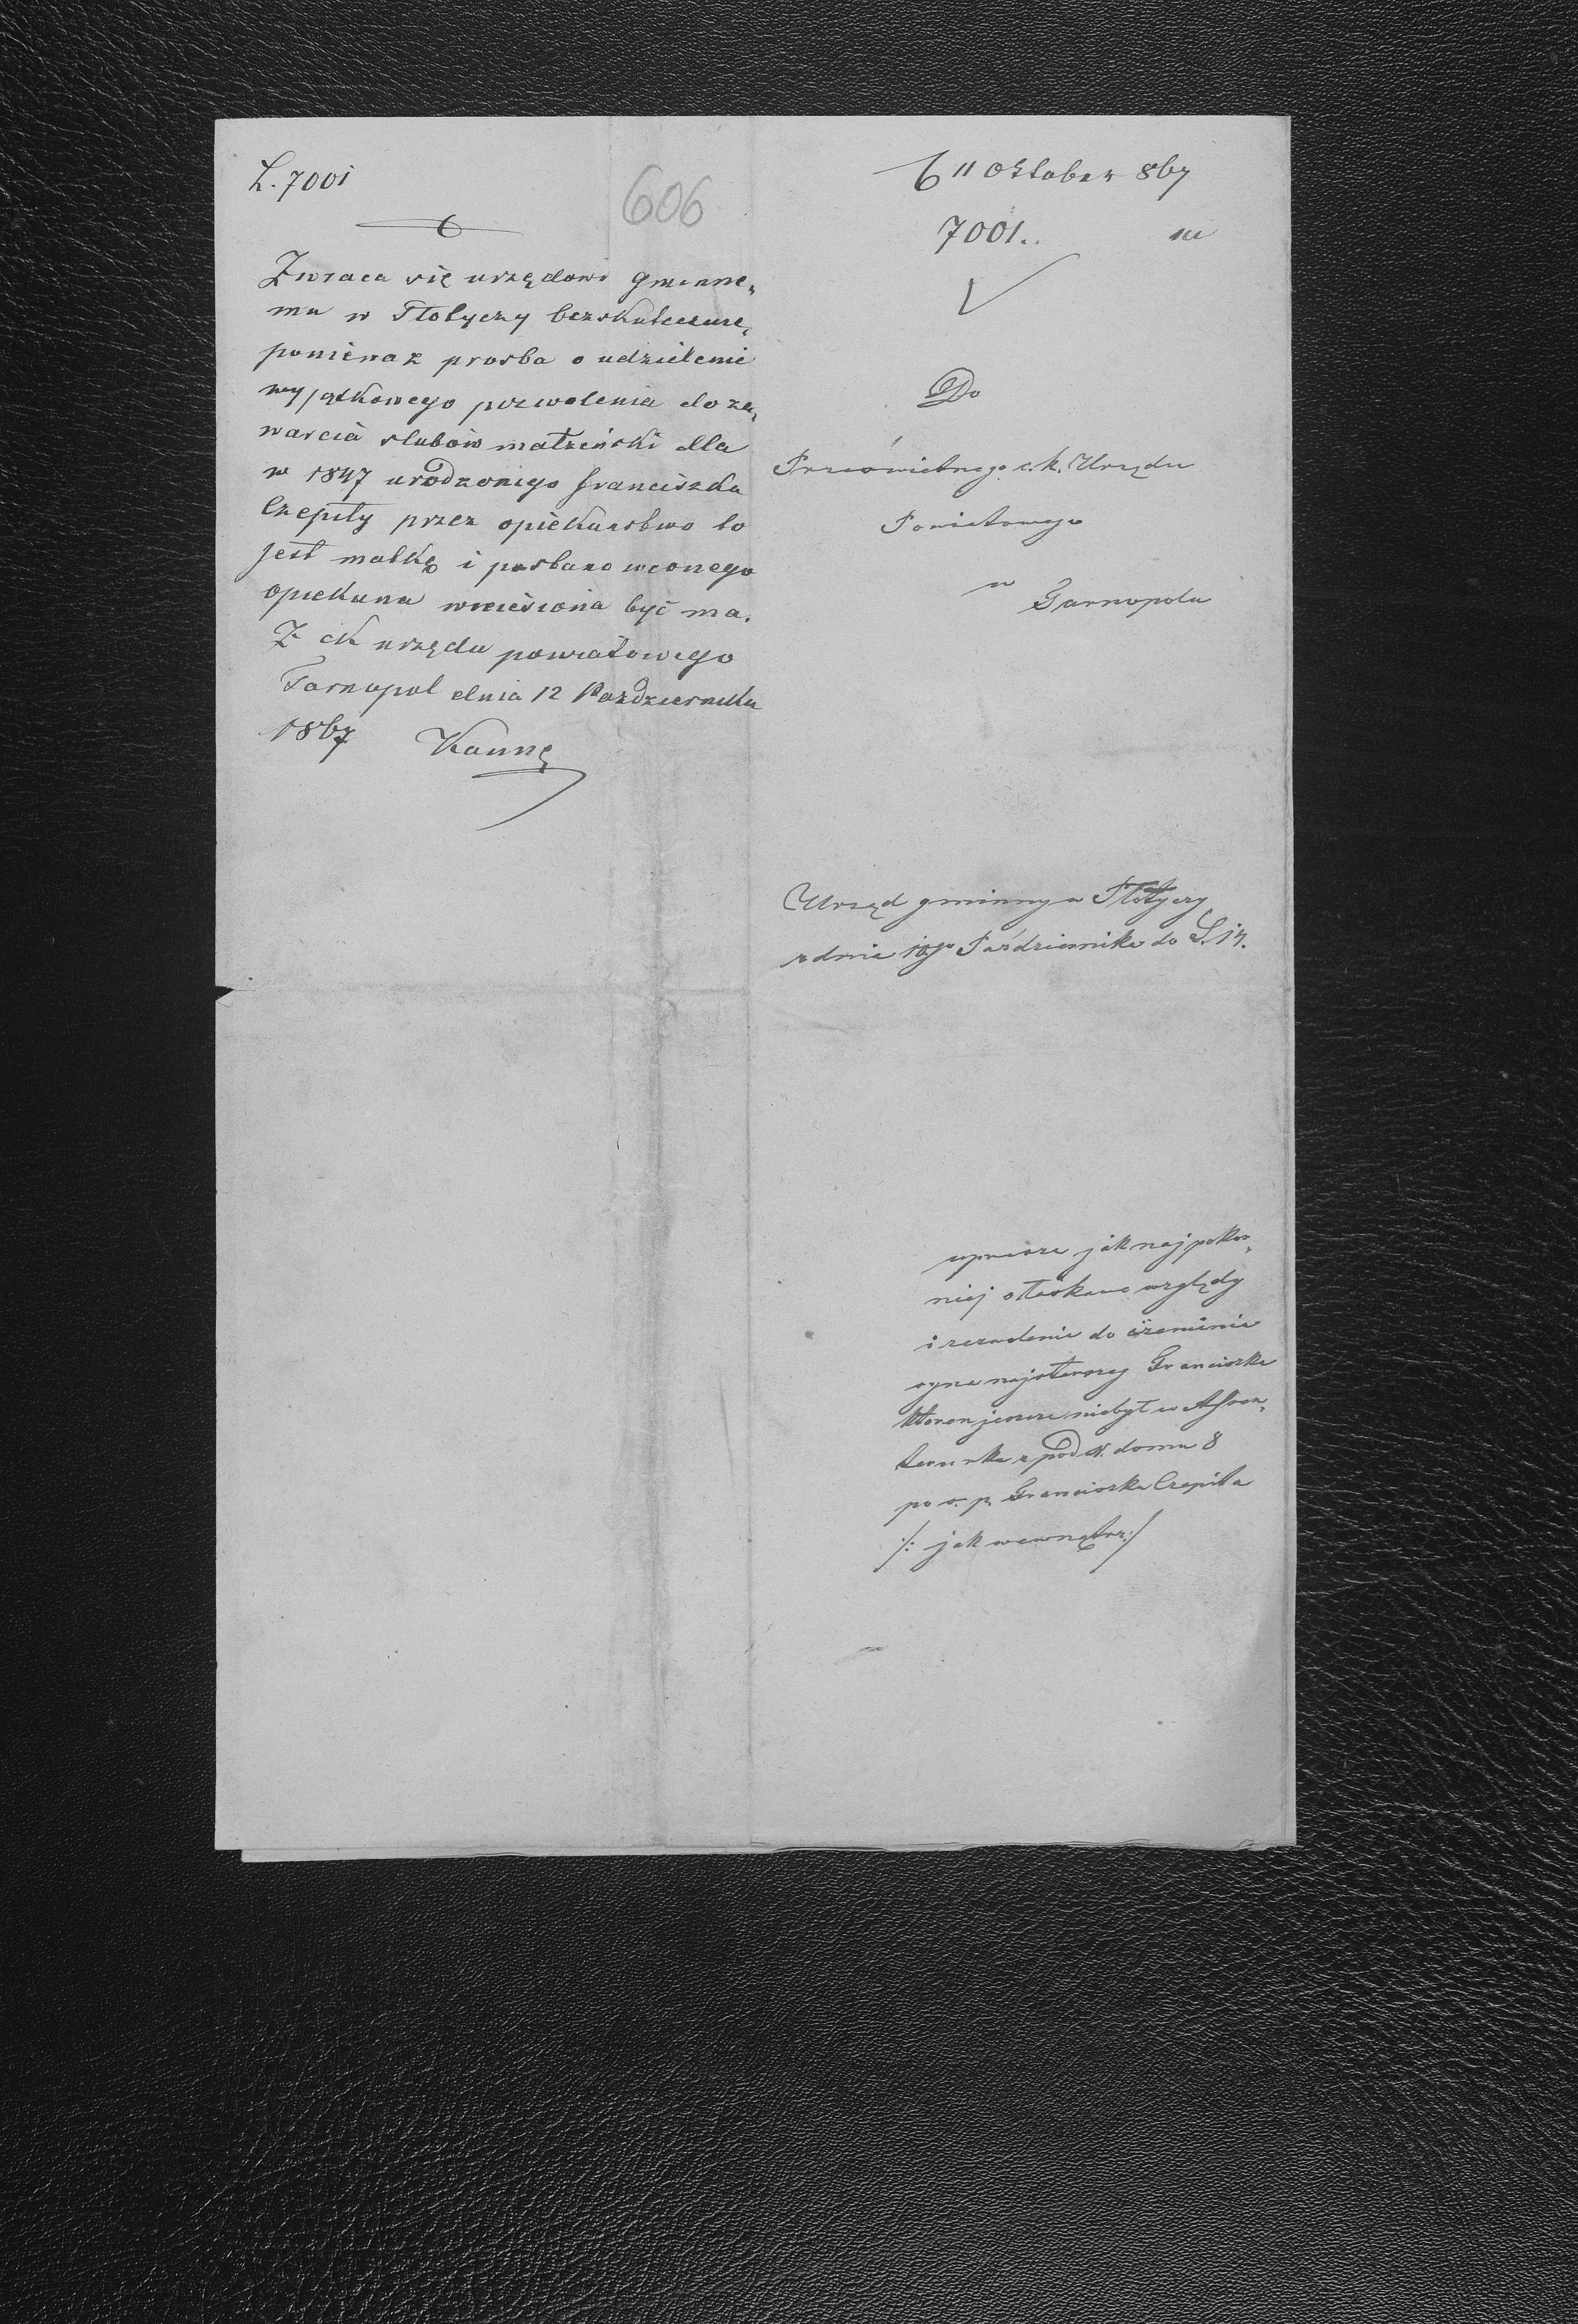 L. 7001
606
Zwraca się urzędowi gminne„
mu w Płotyczy bezskutecznie,
ponieważ prosba o udzielenie
wyjątkowego pozwolenia do za„
warcia slubów małżeński dla
w 1847 urodzonego Franciszka
Czepiły przez opiekuństwo to
jest matkę i postanowionego
opiekuna wniesiona być ma.
Z ck urzędu powiatowego
Tarnopol dnia 12 Pazdziernika
1867
11 Oktober 867
7001.
Do
Prześwietnego c.k. Urzędu
Powiatowego
w Tarnopolu
Urząd gminny w Płotyczy
z dnia 10go Października do L. 14.
uprasza jak najpokor„
niej o łaskawe względy
i zezwolenie do ożenienia
syna najstarszej Franciszka
któren jeszcze niebył w Assen„
terunku z pod N. domu 8
po s. p. Franciszka Czepiła
/: jak wewnątrz :/